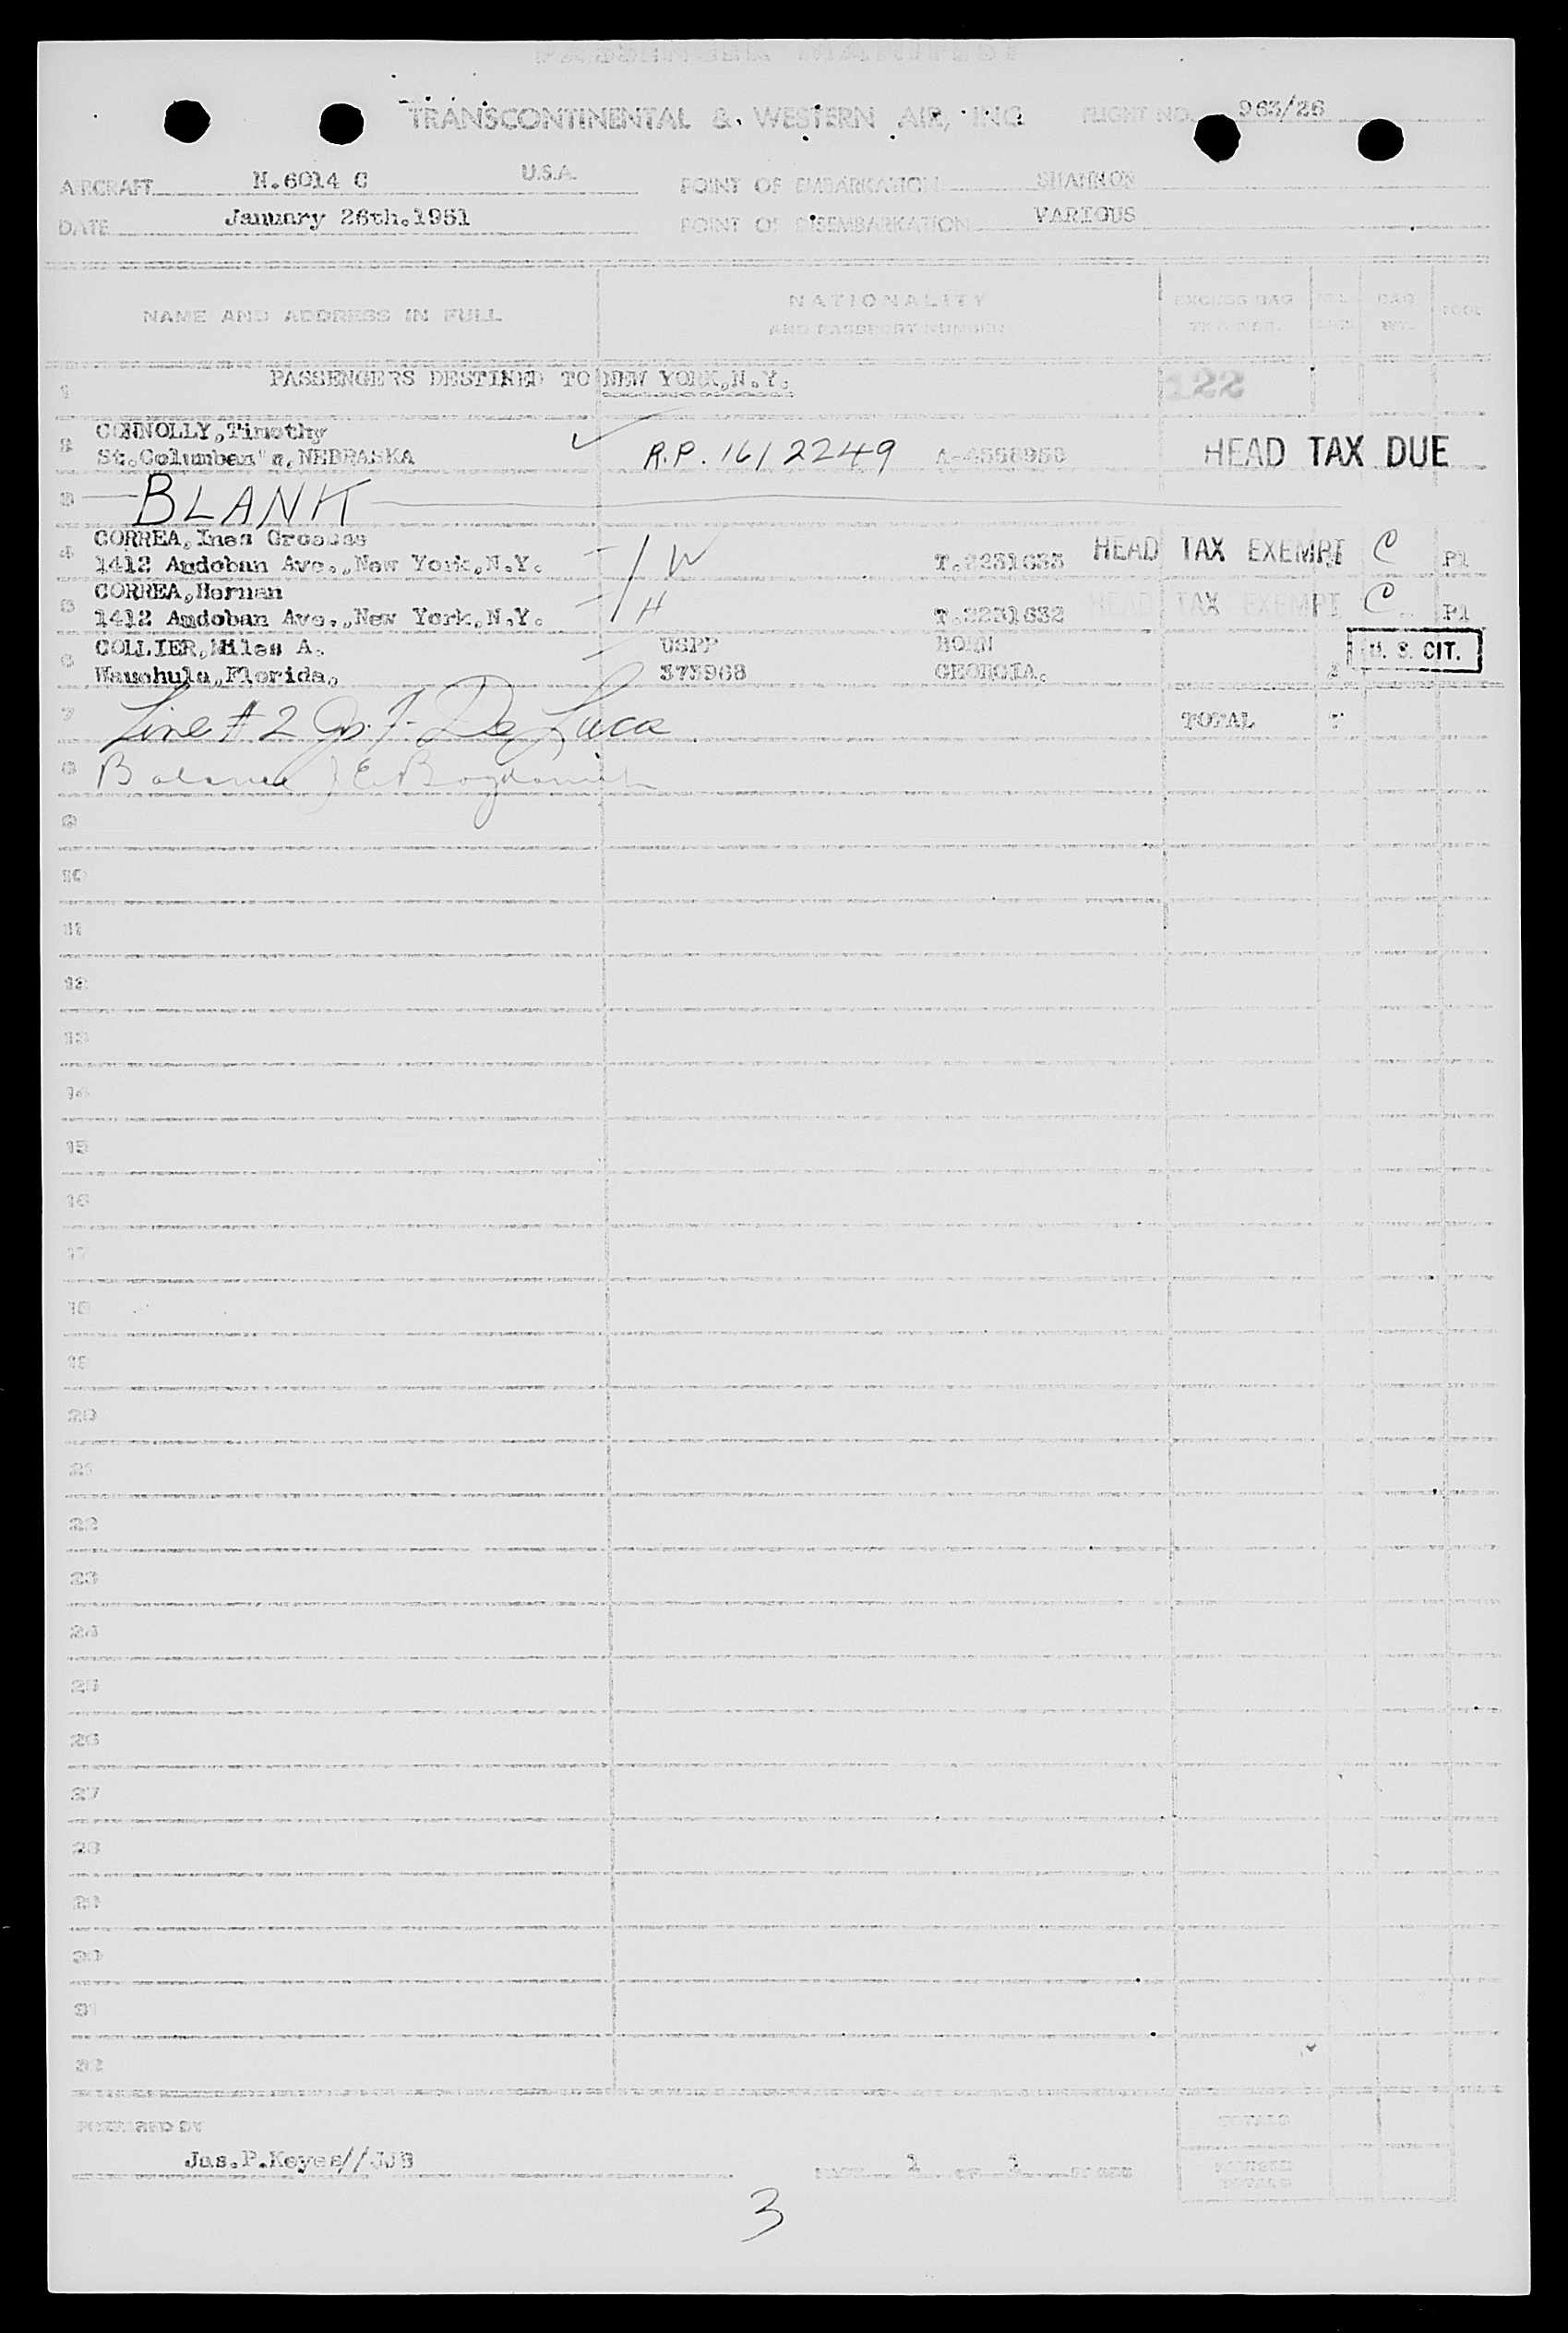 PASSENGER MANIFEST
TRANSCONTINENTAL & WESTERN AIR, INC. FLIGHT NO. 963/26
AIRCRAFT N.6014 C U.S.A. POINT OF EMBARKATION SHANNON
DATE January 26th.1951 POINT OF DISEMBARKATION VARIOUS
NAME AND ADDRESS IN FULL NATIONALITY AND PASSPORT NUMBER EXCESS BAG BAG WT.
1 PASSENGERS DESTINED TO NEW YORK,N.Y. 122
2 CONNOLLY,Timothy
St.Columban"s,NEBRASKA R.P. 1612249 HEAD TAX DUE
3 BLANK
4 CORREA,Ines
1412 Audoban Ave.,New York,N.Y. W T.2231633 HEAD TAX EXEMPT C P1
5 CORREA,Hernan
1412 Audoban Ave.,New York,N.Y. H T.2231632 HEAD TAX EXEMPT C P1
6 COLLIER,Miles A. USPP BORN U. S. CIT.
Wauchula,Florida. 373968 GEORGIA.
7 Line #2 De Luca TOTAL
8 Balance J E Bogdanich
9
10
11
12
13
14
15
16
17
18
19
20
21
22
23
24
25
26
27
28
29
30
31
32
PREPARED BY TOTALS
Jas.P.Keyes//JJB PAGE 1 OF 1 PAGES
3